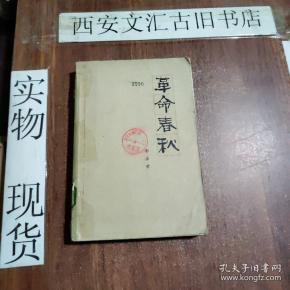 西安文汇古旧书店
实物
现货
革命春秋
孔夫子旧书网